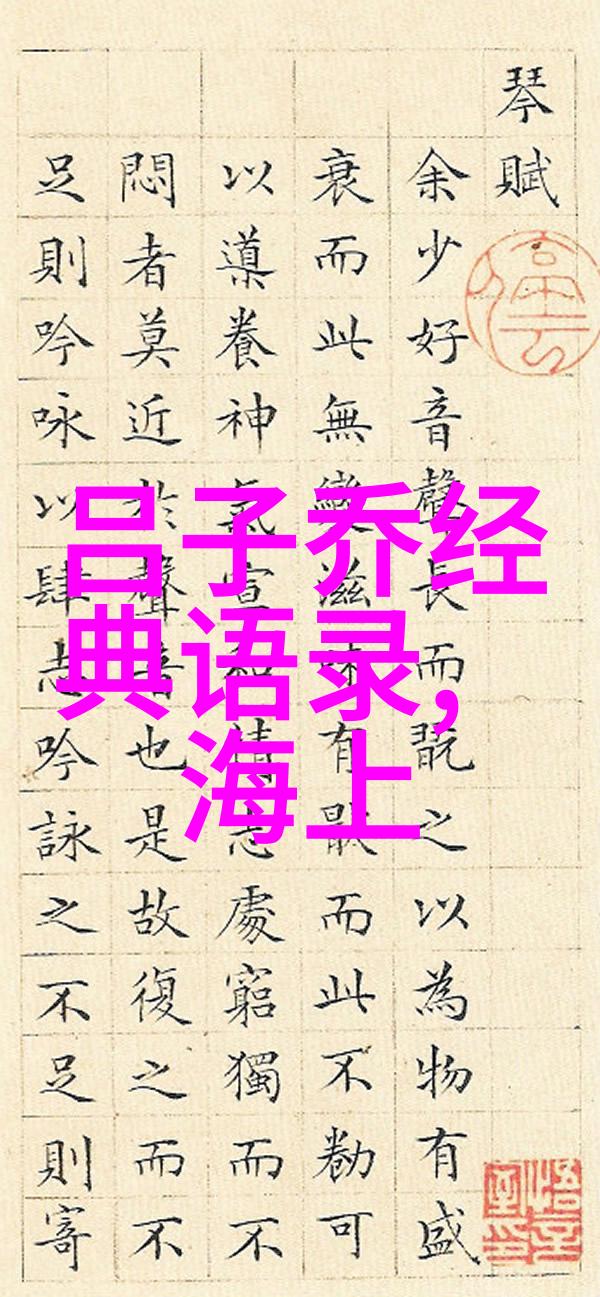 琴賦
余少好音聲長而翫之以為物有盛
衰而此無變滋味有猒而此不勌可
以導養神氣宣和情志處窮獨而不
悶者莫近於聲音也是故復之而不
足則吟咏以肆志吟詠之不足則寄
吕子乔经
典语录,
海上